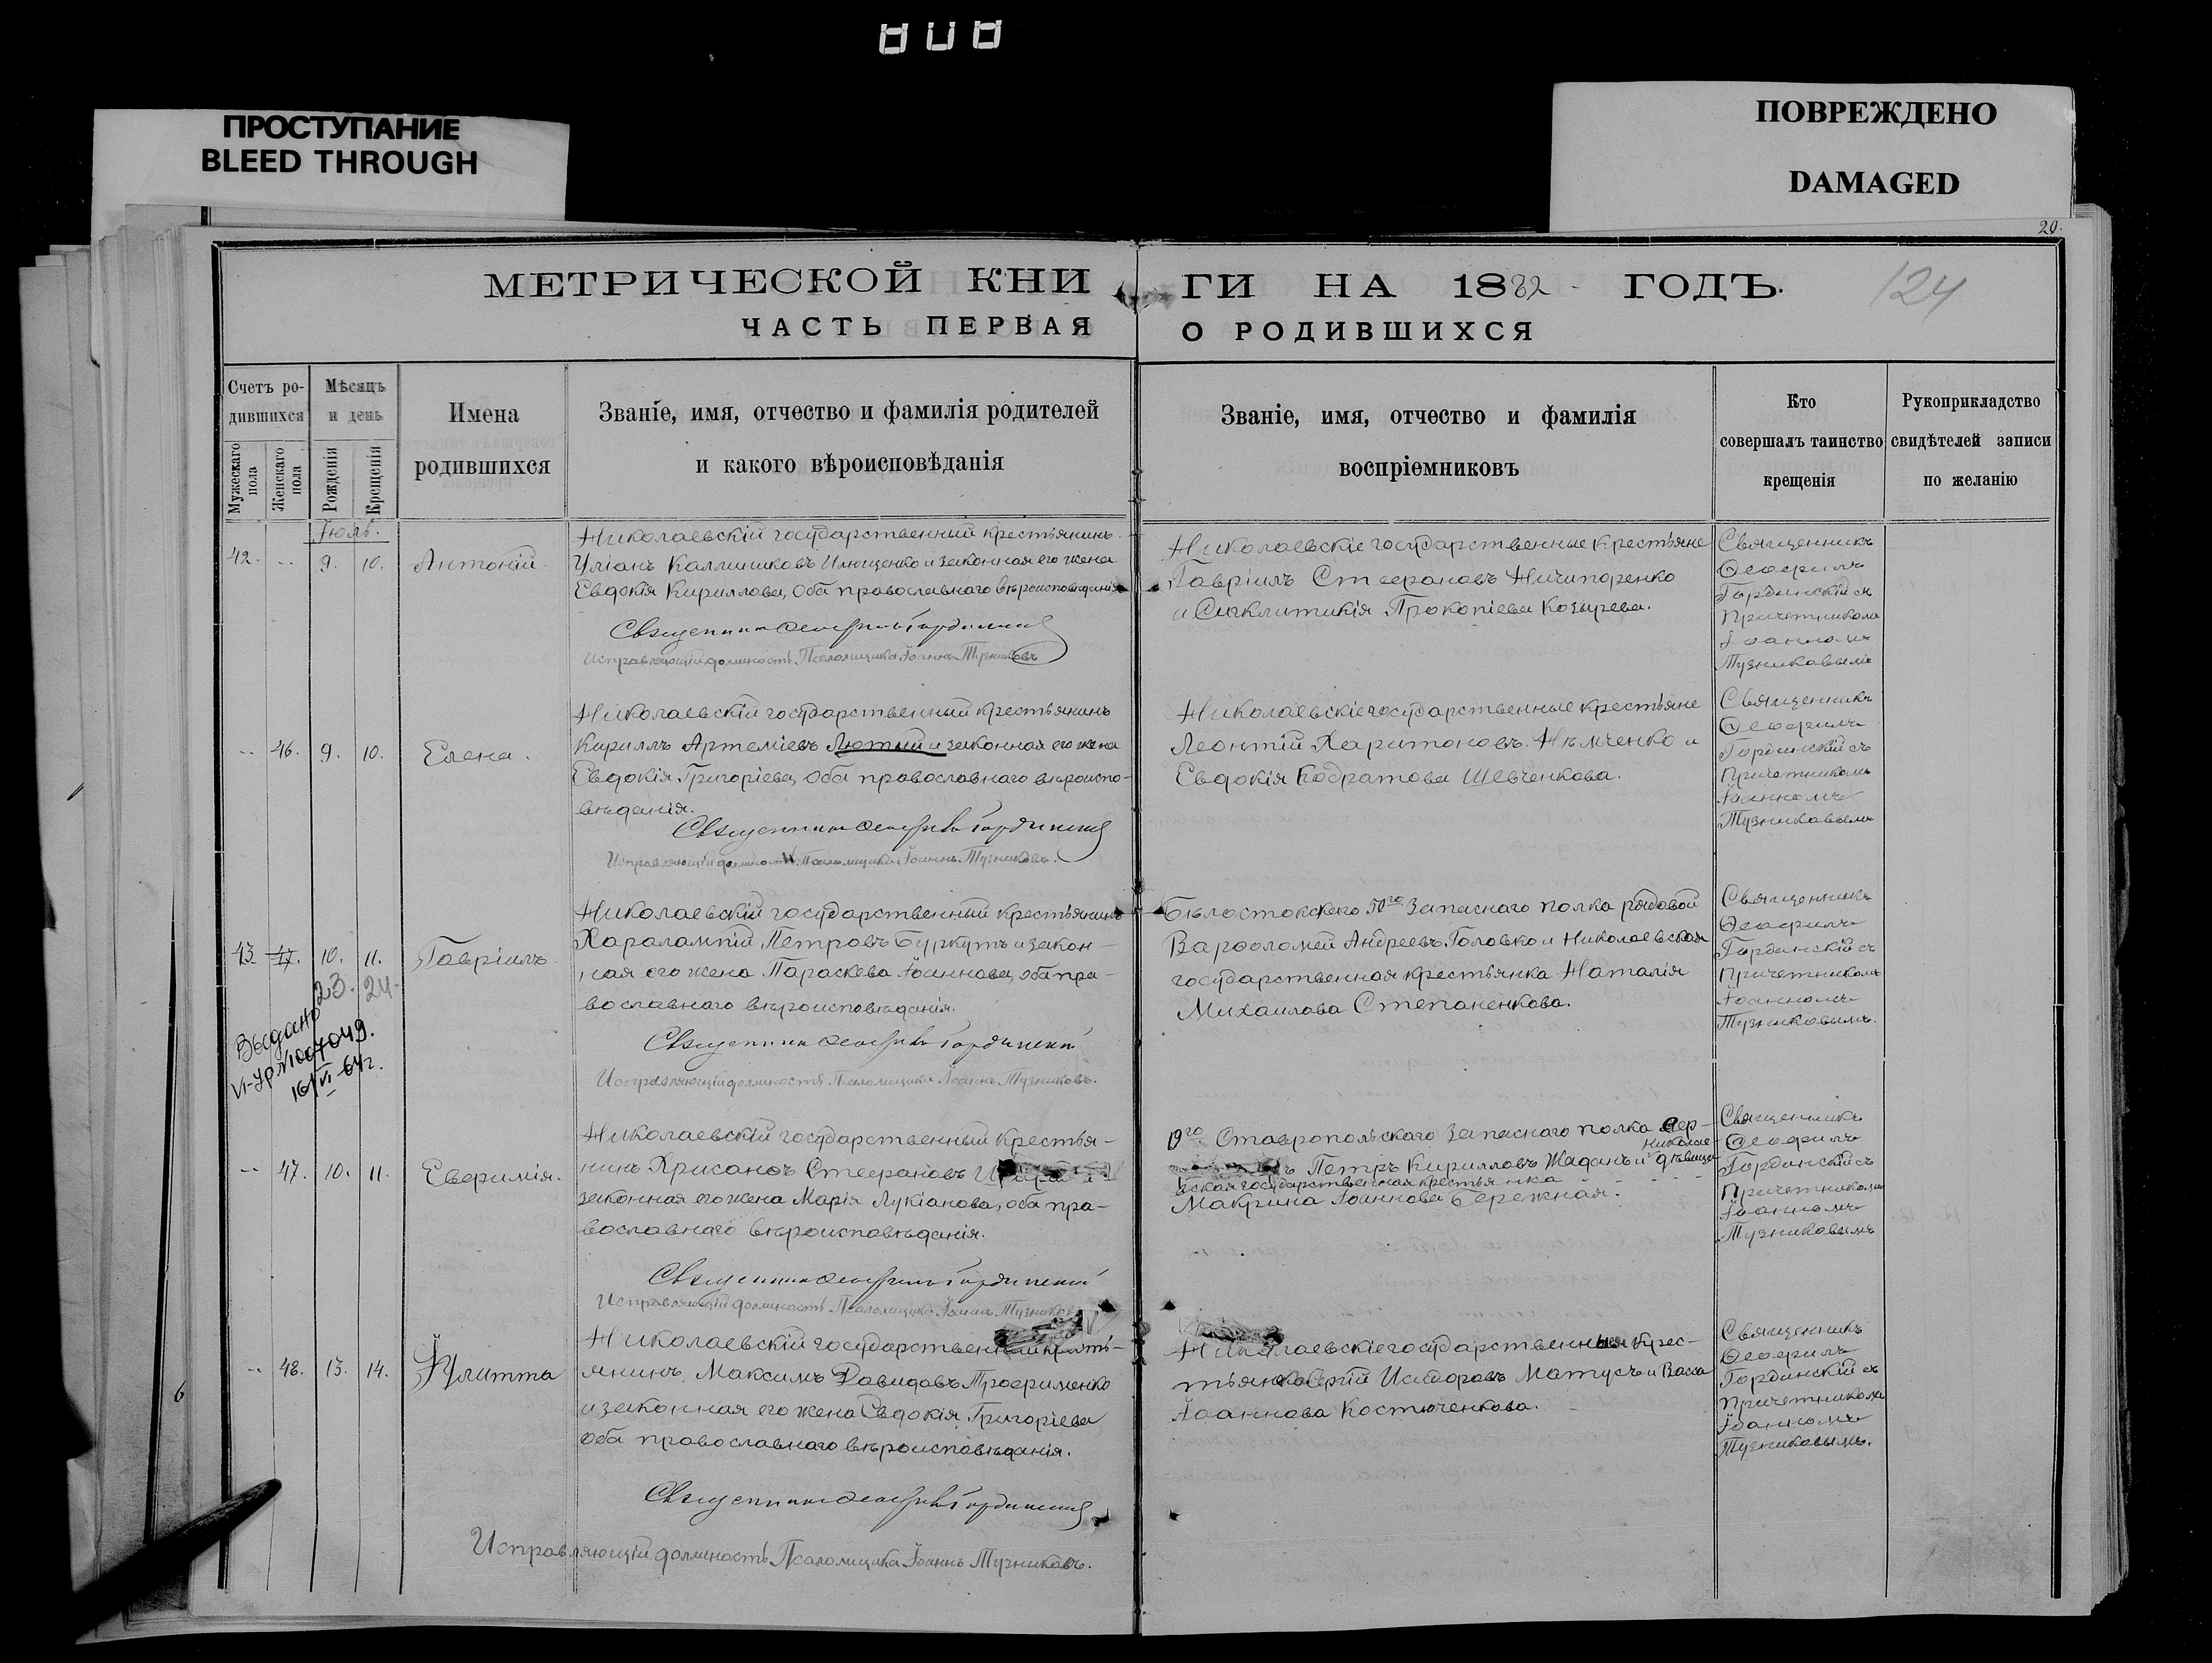 808
ПРОСТУПАНИЕ
BLEED THROUGH
ПОВРЕЖДЕНО
DAMAGED
20.
МЕТРИЧЕСКОЙ КНИ ГИ НА 1882 ГОДЪ.
124
ЧАСТЬ ПЕРВАЯ О РОДИВШИХСЯ
Счетъ ро-
дившихся
Мужескаго
пола
Женскаго
пола
Мѣсяцъ
и день
Рожденія
Крещенія
Имена
родившихся
Званіе, имя, отчество и фамилія родителей
и какого вѣроисповѣданія
Званіе, имя, отчество и фамилія
воспріемниковъ
Кто
совершалъ таинство
крещенія
Рукоприкладство
свидѣтелей записи
по желанію
Іюль.
42. -- 9. 10. Антоній.
Николаевскій государственный крестьянинъ
Уліанъ Каллиниковъ Илющенко и законная его жена
Евдокія Кириллова, оба православнаго вѣроисповѣданія
Священникъ Ѳеофилъ Гординскій
Исправляющій должность Псаломщика Іоаннъ Тузниковъ
Николаевскіе государственные крестьяне
Гавріилъ Стефановъ Ничипоренко
и Сигклитикія Прокопіева Козырева.
Священникъ
Ѳеофилъ
Гординскій съ
Причетникомъ
Іоанномъ
Тузниковымъ
-- 46. 9. 10. Елена.
Николаевскій государственный крестьянинъ
Кириллъ Артеміевъ Лютый и законная его жена
Евдокія Григоріева, оба православнаго вѣроиспо-
вѣданія.
Священникъ Ѳеофилъ Гординскій
Исправляющій должность Псаломщика Іоаннъ Тузниковъ.
Николаевскіе государственные крестьяне
Леонтій Харитоновъ Нѣмченко и
Евдокія Кодратова Шевченкова.
Священникъ
Ѳеофилъ
Гординскій съ
Причетникомъ
Іоанномъ
Тузниковымъ
43 47. 10. 11. Гавріилъ
23. 24.
Выдано
VI-УР №1007049.
16/VI-64г.
Николаевскій государственный крестьянинъ
Харалампій Петровъ Буркутъ и закон-
ная его жена Параскева Іоаннова, оба пра-
вославнаго вѣроисповѣданія.
Священникъ Ѳеофилъ Гординскій
Исправляющій должность Псаломщика Іоаннъ Тузниковъ.
Бѣлостокскаго 50го Запаснаго полка рядовой
Варѳоломей Андреевъ Головко и Николаевская
государственная крестьянка Наталія
Михаилова Степаненкова.
Священникъ
Ѳеофилъ
Гординскій съ
Причетникомъ
Іоанномъ
Тузниковымъ.
-- 47. 10. 11. Евфимія.
Николаевскій государственный крестья-
нинъ Хрисанѳъ Стефановъ
законная его жена Марія Лукіанова, оба пра-
вославнаго вѣроисповѣданія.
Священникъ Ѳеофилъ Гординскій
Исправляющій должность Псаломщика Іоаннъ Тузников
19го Ставропольскаго Запаснаго полка
Николае-
Петръ Кирилловъ Жаданъ и дѣвица
вская государственная крестьянка
Макрина Іоаннова Бережная.
Священникъ
Ѳеофилъ
Гординскій съ
Причетникомъ
Іоанномъ
Тузниковымъ
-- 48. 13. 14. Іулитта
Николаевскій государственный кресть-
янинъ Максимъ Давидовъ Трофименко
и законная его жена Евдокія Григоріева
оба православнаго вѣроисповѣданія.
Священникъ Ѳеофилъ Гординскій
Исправляющій должность Псаломщика Іоаннъ Тузниковъ.
Николаевскіе государственные крес-
тьяне Исидоровъ Матусъ и Васса
Іоаннова Костюченкова.
Священникъ
Ѳеофилъ
Гординскій съ
Причетникомъ
Іоанномъ
Тузниковымъ.
6